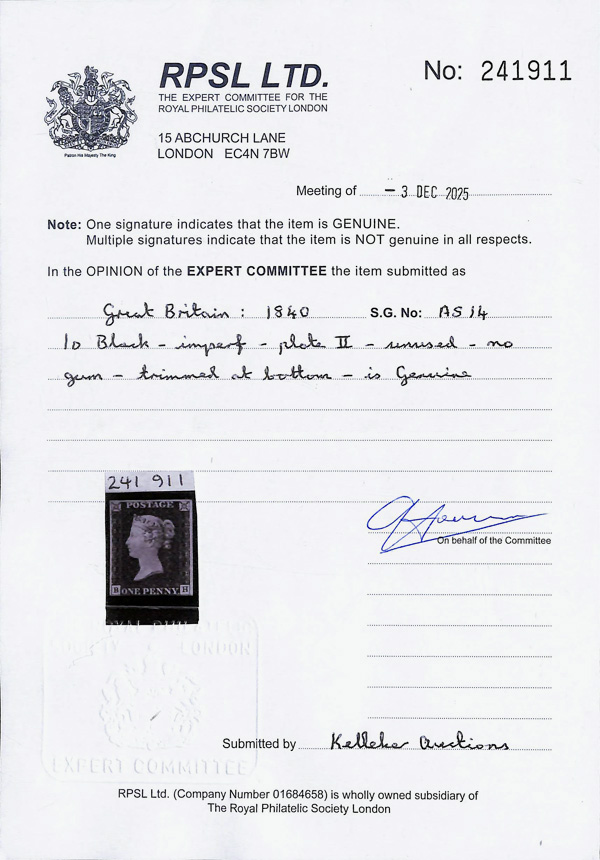 RPSL LTD.
THE EXPERT COMMITTEE FOR THE
ROYAL PHILATELIC SOCIETY LONDON
No: 241911
Patron His Majesty The King
15 ABCHURCH LANE
LONDON EC4N 7BW
Meeting of - 3 DEC 2025
Note: One signature indicates that the item is GENUINE.
Multiple signatures indicate that the item is NOT genuine in all respects.
In the OPINION of the EXPERT COMMITTEE the item submitted as
Great Britain: 1840 S.G. No: AS14
1D Black - imperf - plate II - unused - no
gum - trimmed at bottom - is Genuine
241 911
POSTAGE
B ONE PENNY H
On behalf of the Committee
ROYAL PHILATELIC
SOCIETY LONDON
EXPERT COMMITTEE
Submitted by Kelleher Auctions
RPSL Ltd. (Company Number 01684658) is wholly owned subsidiary of
The Royal Philatelic Society London